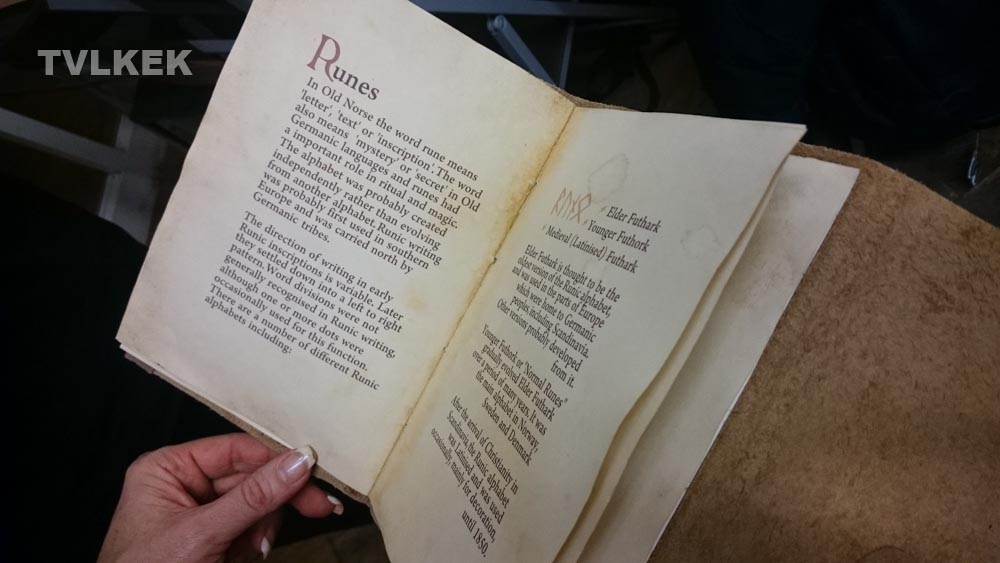 TVLKEK
Runes
In Old Norse the word rune means
'letter', 'text', or 'inscription'. The word
also means 'mystery' or 'secret' in Old
Germanic languages and runes had
a important role in ritual and magic.
The alphabet was probably created
independently rather than evolving
from another alphabet. Runic writing
was probably first used in southern
Europe and was carried north by
Germanic tribes.
The direction of writing in early
Runic inscriptions is variable. Later
they settled down into a left to right
pattern. Word divisions were not
generally recognised in Runic writing,
although one or more dots were
occasionally used for this function.
There are a number of different Runic
alphabets including:
ᚱᚢᚾᛟ
Elder Futhark
Younger Futhork
Medieval (Latinised) Futhark
Elder Futhark is thought to be the
oldest version of the Runic alphabet,
and was used in the parts of Europe
which were home to Germanic
peoples, including Scandinavia.
Other versions probably developed
from it.
Younger Futhork or "Normal Runes"
gradually evolved Elder Futhark
over a period of many years. It was
the main alphabet in Norway,
Sweden and Denmark
After the arrival of Christianity in
Scandinavia, the Runic alphabet
was Latinised and was used
occasionally, mainly for decoration,
until 1850.